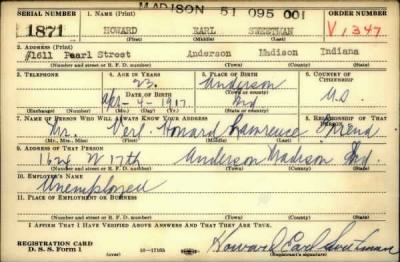 MADISON 51 095 001
SERIAL NUMBER 1. NAME (Print) ORDER NUMBER
1871 HOWARD EARL SWEETMAN V1347
(First) (Middle) (Last)
2. ADDRESS (Print)
1611 Pearl Street Anderson Madison Indiana
(Number and street or R. F. D. number) (Town) (County) (State)
3. TELEPHONE 4. AGE IN YEARS 5. PLACE OF BIRTH 6. COUNTRY OF CITIZENSHIP
23 Anderson
DATE OF BIRTH (Town or county)
Apr-4-1917 Ind U.S.
(Exchange) (Number) (Mo.) (Day) (Yr.) (State or country)
7. NAME OF PERSON WHO WILL ALWAYS KNOW YOUR ADDRESS 8. RELATIONSHIP OF THAT PERSON
Mr. Verl Howard Lawrence Friend
(Mr., Mrs., Miss) (First) (Middle) (Last)
9. ADDRESS OF THAT PERSON
1624 W 17th Anderson Madison Ind.
(Number and street or R. F. D. number) (Town) (County) (State)
10. EMPLOYER'S NAME
Unemployed
11. PLACE OF EMPLOYMENT OR BUSINESS
(Number and street or R. F. D. number) (Town) (County) (State)
I AFFIRM THAT I HAVE VERIFIED ABOVE ANSWERS AND THAT THEY ARE TRUE.
REGISTRATION CARD
D. S. S. Form 1 Howard Earl Sweetman
(over) (Registrant's signature)